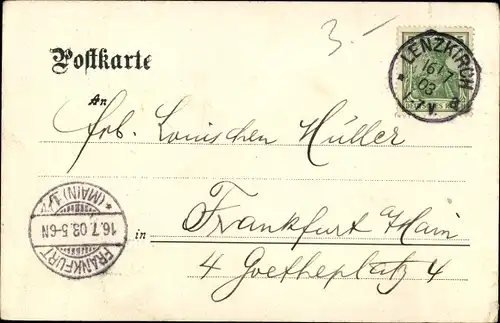 3.-
Postkarte
LENZKIRCH
16/7
03
V.
DEUTSCHES REICH
An
Frl. Louischen Müller
(MAIN) 1
16.7.03.5-6N
FRANKFURT
in
Frankfurt a/Main
4 Goetheplatz 4